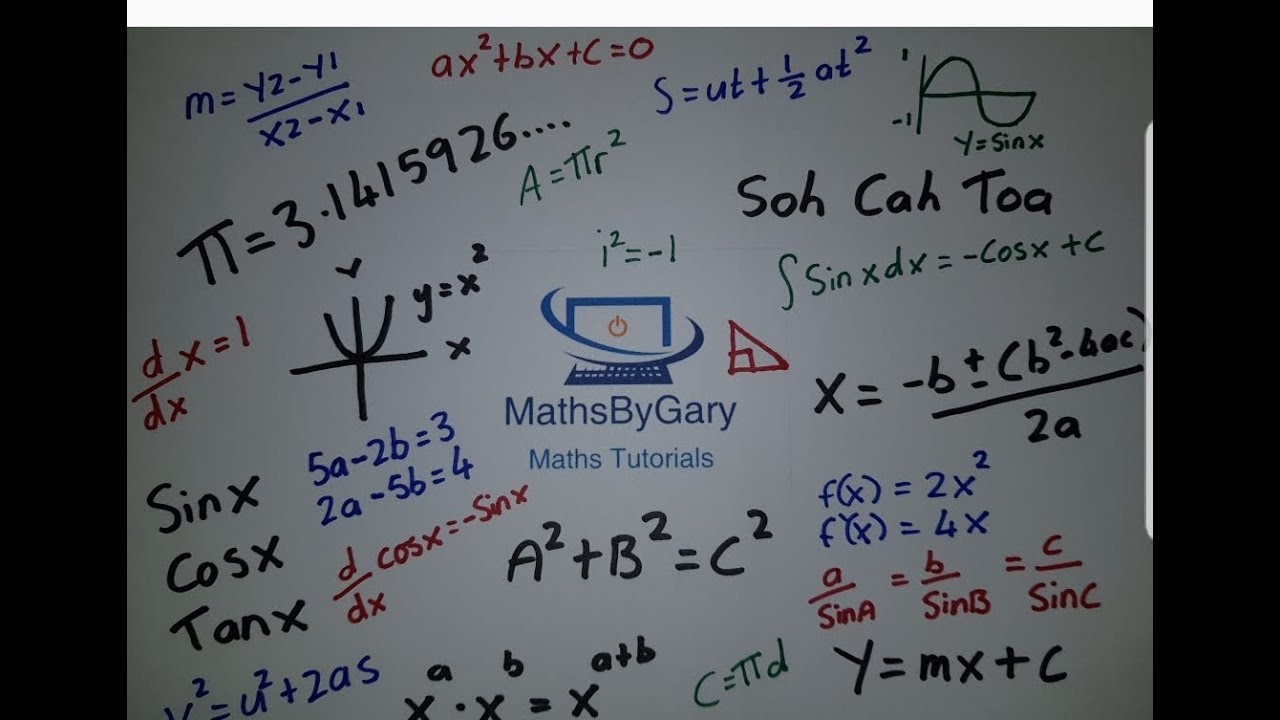 m=Y2-Y1/X2-X1
ax²+bx+c=0
S=ut+½at²
1
-1
Y=Sinx
π=3.1415926....
A=πr²
Soh Cah Toa
i²=-1
∫Sinxdx=-Cosx+C
y=x²
x
d/dx x=1
X=-b±(b²-4ac)/2a
MathsByGary
Maths Tutorials
5a-2b=3
2a-5b=4
f(x)=2x²
f'(x)=4x
Sinx
Cosx
Tanx
d/dx cosx=-Sinx
A²+B²=C²
a/SinA=b/SinB=c/SinC
V²=u²+2as
xᵃ·xᵇ=xᵃ⁺ᵇ
C=πd
Y=mx+C